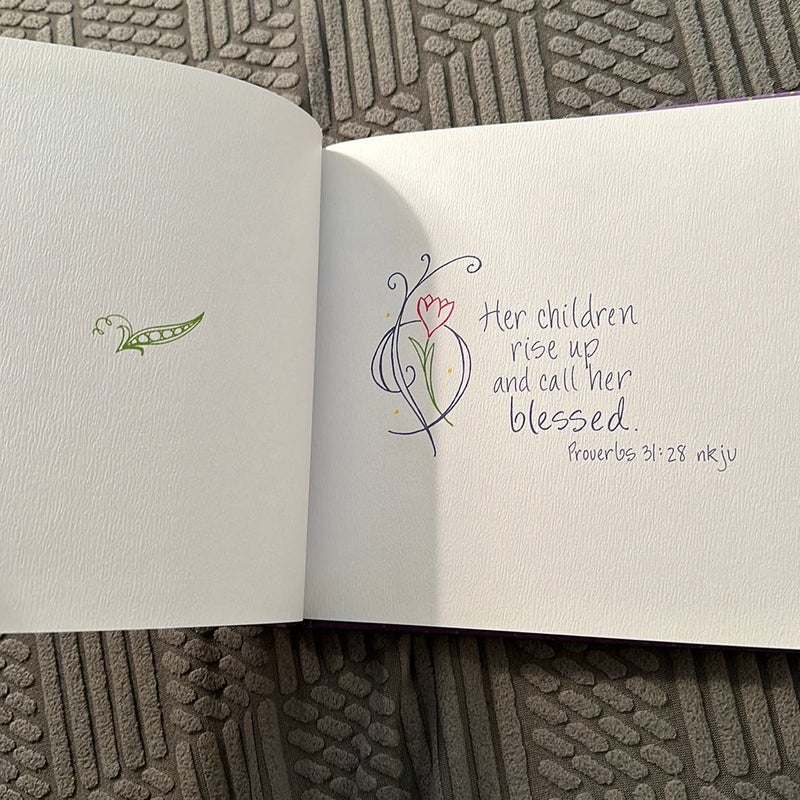 Her children
rise up
and call her
blessed.
Proverbs 31:28 nkjv